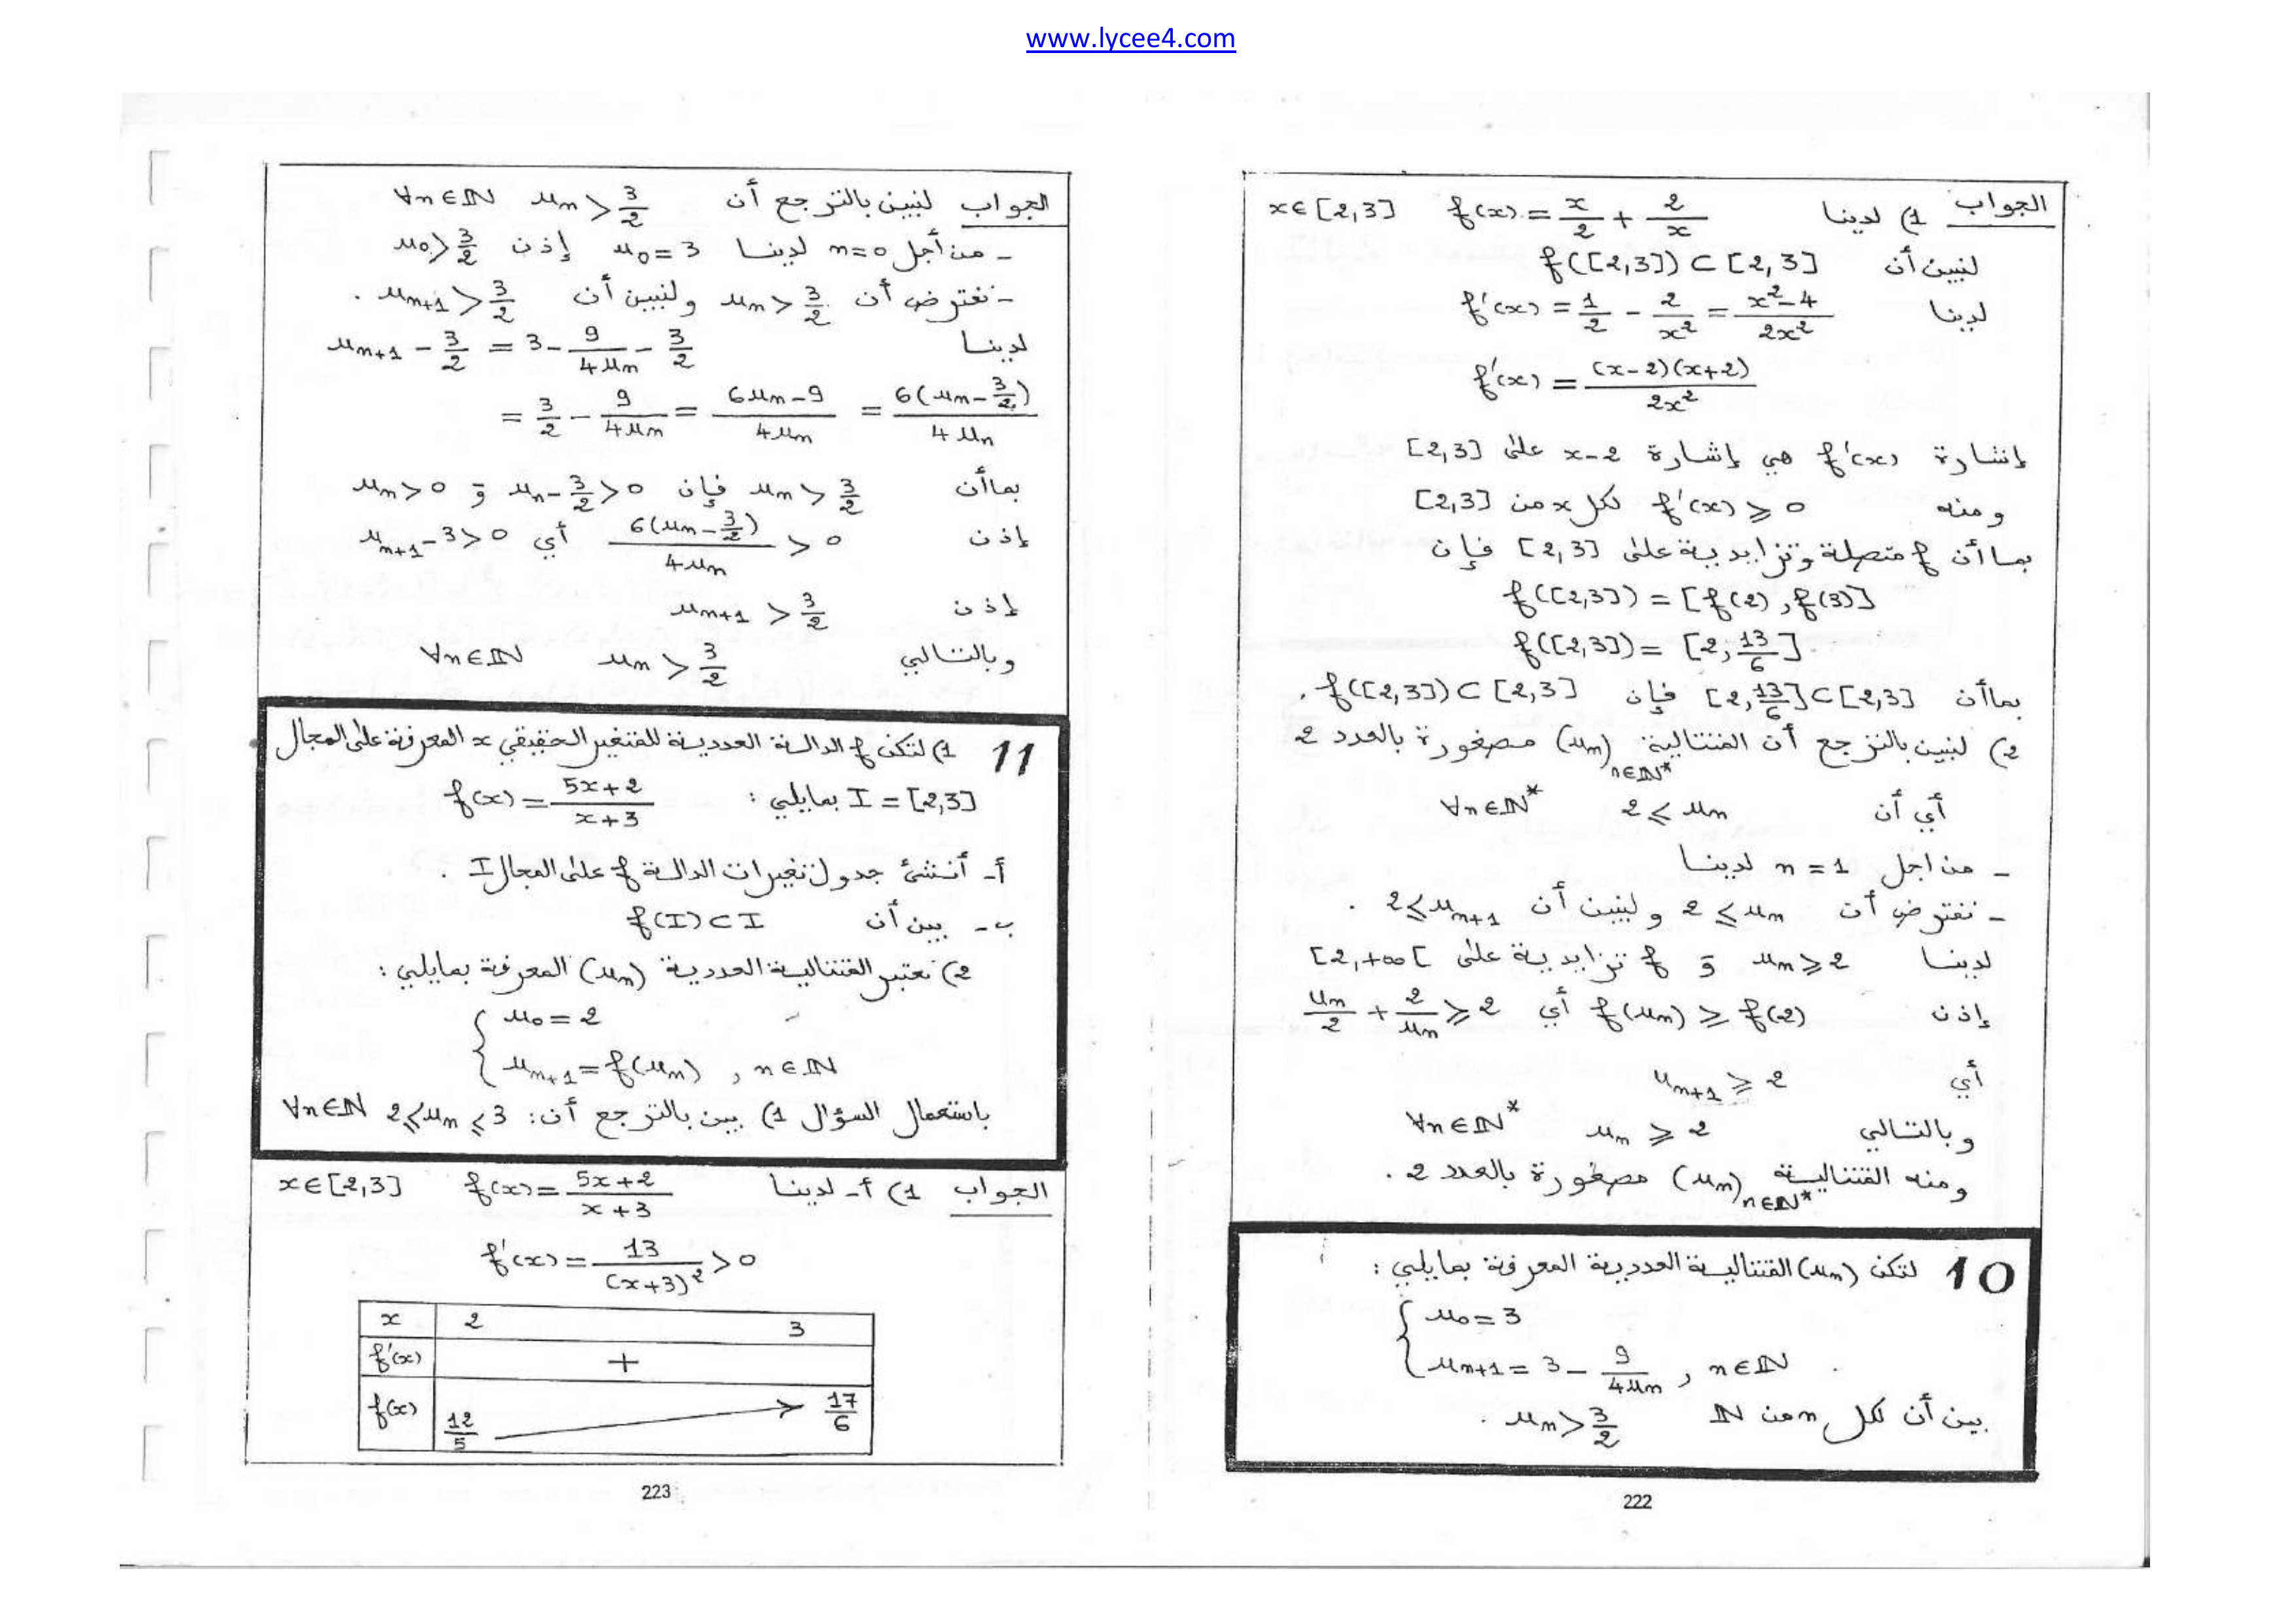 www.lycee4.com
الجواب 1) لدينا f(x) = x/2 + 2/x x∈[2,3]
لنبين أن f([2,3]) ⊂ [2,3]
لدينا f'(x) = 1/2 - 2/x² = (x²-4)/(2x²)
f'(x) = (x-2)(x+2)/(2x²)
إشارة f'(x) هي إشارة x-2 على [2,3]
ومنه f'(x) ⩾ 0 لكل x من [2,3]
بما أن f متصلة وتزايدية على [2,3] فإن
f([2,3]) = [f(2), f(3)]
f([2,3]) = [2, 13/6]
بما أن [2, 13/6] ⊂ [2,3] فإن f([2,3]) ⊂ [2,3].
2) لنبين بالترجع أن المتتالية (uₙ)n∈ℕ* مصغورة بالعدد 2
أي أن 2 ⩽ uₙ ∀n∈ℕ*
- من اجل n = 1 لدينا
- نفترض أن 2 ⩽ uₙ ولنبين أن 2 ⩽ uₙ₊₁ .
لدينا uₙ ⩾ 2 و f تزايدية على [2,+∞[
إذن f(uₙ) ⩾ f(2) أي uₙ/2 + 2/uₙ ⩾ 2
أي uₙ₊₁ ⩾ 2
وبالتالي uₙ ⩾ 2 ∀n∈ℕ*
ومنه المتتالية (uₙ)n∈ℕ* مصغورة بالعدد 2.
10 لتكن (uₙ) المتتالية العددية المعرفة بمايلي :
{ u₀ = 3
uₙ₊₁ = 3 - 9/(4uₙ) , n∈ℕ .
بين أن لكل n من ℕ uₙ > 3/2 .
222
الجواب لنبين بالترجع أن uₙ > 3/2 ∀n∈ℕ
- من أجل n=0 لدينا u₀ = 3 إذن u₀ > 3/2
- نفترض أن uₙ > 3/2 ولنبين أن uₙ₊₁ > 3/2 .
لدينا uₙ₊₁ - 3/2 = 3 - 9/(4uₙ) - 3/2
= 3/2 - 9/(4uₙ) = (6uₙ-9)/(4uₙ) = 6(uₙ-3/2)/(4uₙ)
بما أن uₙ > 3/2 فإن uₙ - 3/2 > 0 و uₙ > 0
إذن 6(uₙ-3/2)/(4uₙ) > 0 أي uₙ₊₁ - 3 > 0
إذن uₙ₊₁ > 3/2
وبالتالي uₙ > 3/2 ∀n∈ℕ
11 1) لتكن f الدالة العددية للمتغير الحقيقي x المعرفة على المجال
I = [2,3] بمايلي : f(x) = (5x+2)/(x+3)
أ- أنشئ جدول تغيرات الدالة f على المجال I .
ب- بين أن f(I) ⊂ I
2) نعتبر المتتالية العددية (uₙ) المعرفة بمايلي :
{ u₀ = 2
uₙ₊₁ = f(uₙ) , n∈ℕ
باستعمال السؤال 1) بين بالترجع أن : 2 ⩽ uₙ ⩽ 3 ∀n∈ℕ
الجواب 1) أ- لدينا f(x) = (5x+2)/(x+3) x∈[2,3]
f'(x) = 13/(x+3)² > 0
x 2 3
f'(x) +
f(x) 12/5 17/6
223